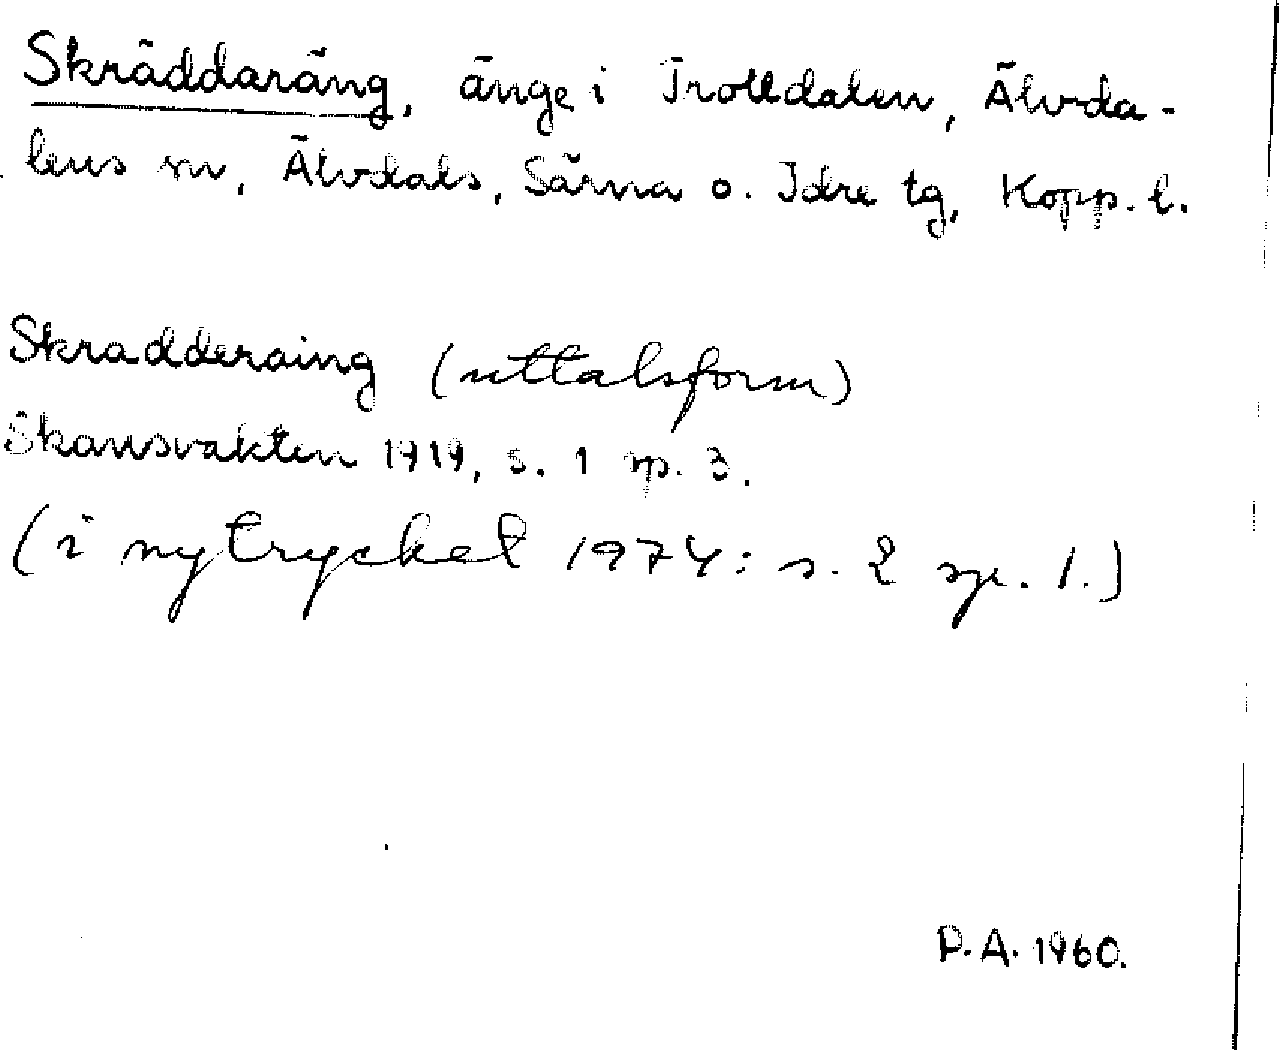 Skräddaräng, änge i Trolldalen, Älvda-
lens sn, Älvdals, Särna o. Idre tg, Kopp. l.
Skradderaing (uttalsform)
Skansvakten 1919, s. 1 sp. 3.
(i nytrycket 1974: s. 2 sp. 1.)
P.A. 1960.